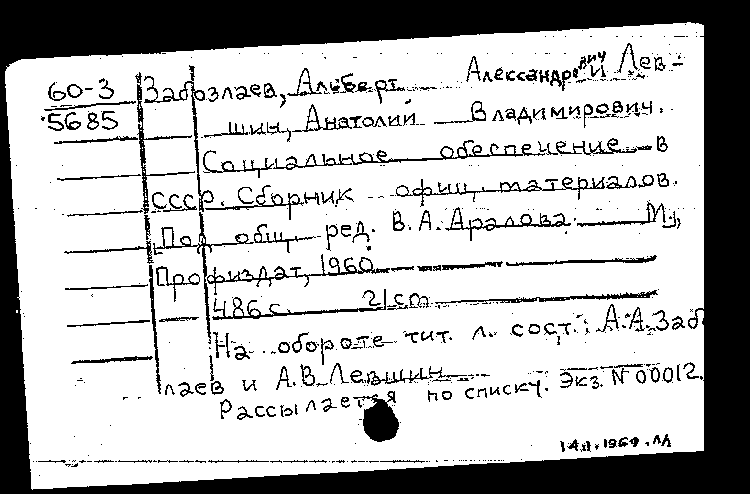 60-3 Забозлаев, Альберт Александрович и Лев-
5685 шин, Анатолий Владимирович.
Социальное обеспечение в
СССР. Сборник офиц. материалов.
Под общ. ред. В.А.Аралова. М.,
Профиздат, 1960.
486 с. 21 cm.
На обороте тит. л. сост.: А.А.Забоз
лаев и А.В.Левшин
Рассылается по списку. Экз. N 00012.